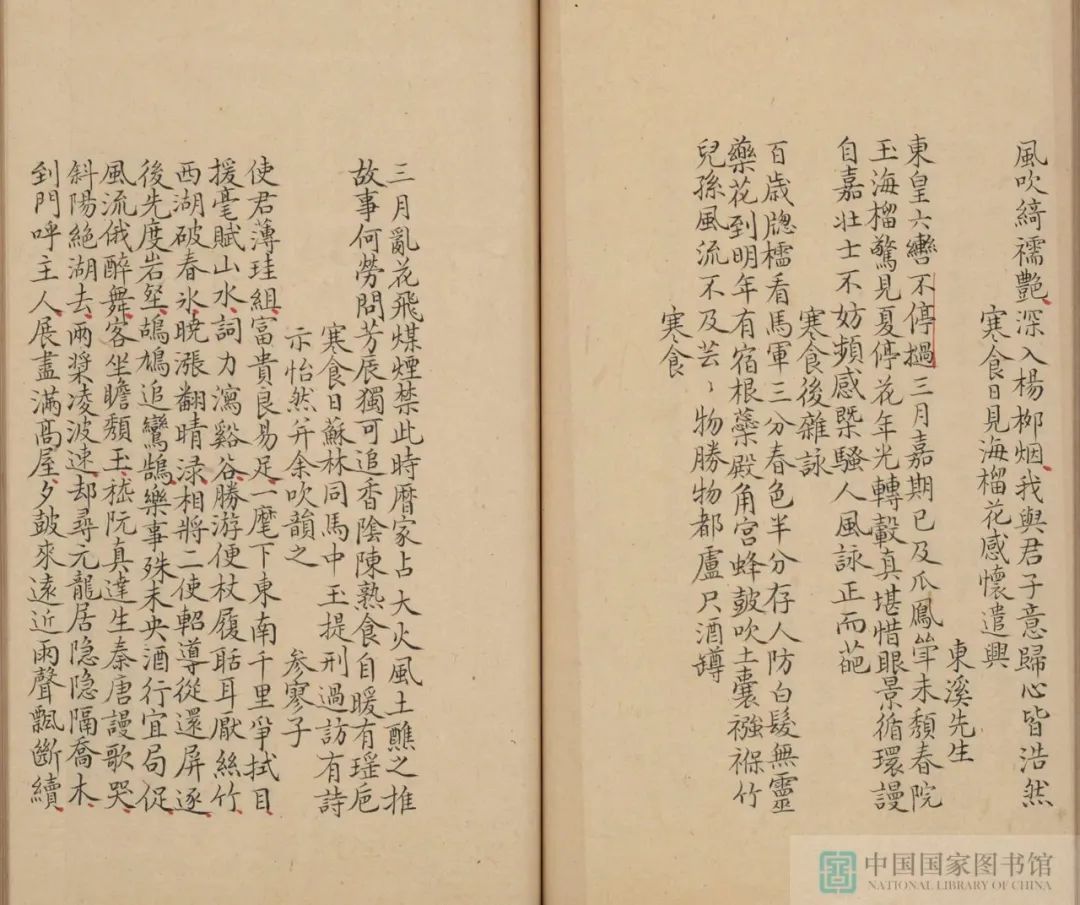 風吹綺襦艷深入楊柳烟我與君子意歸心皆浩然
寒食日見海榴花感懷遣興
東溪先生
東皇六轡不停撾三月嘉期已及瓜鳳筆未頹春院
玉海榴驚見夏停花年光轉轂真堪惜眼景循環謾
自嘉壯士不妨頻感槩騷人風詠正而葩
寒食後雜詠
百歳牎櫺看馬軍三分春色半分存人防白髮無靈
藥花到明年有宿根蘂殿角宮蜂鼓吹土囊襁褓竹
兒孫風流不及芸〻物勝物都盧尺酒罇
寒食
三月亂花飛煤煙禁此時暦家占大火風土醮之推
故事何勞問芳辰獨可追香陰陳熟食自暖有瑶巵
寒食日蘇林同馬中玉提刑過訪有詩
示怡然并余吹韻之
參寥子
使君薄珪組富貴良易足一麾下東南千里爭拭目
援毫賦山水詞力瀉谿谷勝游便杖履聒耳厭絲竹
西湖破春氷曉漲翻晴渌相將二使軺導從還屏逐
後先度岩壑鴣鳩追鸞鵠樂事殊未央酒行宜局促
風流俄醉舞客坐瞻頹玉嵇阮真達生秦唐謾歌哭
斜陽絕湖去兩槳凌波速却尋元龍居隐隐隔喬木
到門呼主人展盡滿髙屋夕鼓來遠近雨聲飄斷續
中国国家图书馆
NATIONAL LIBRARY OF CHINA